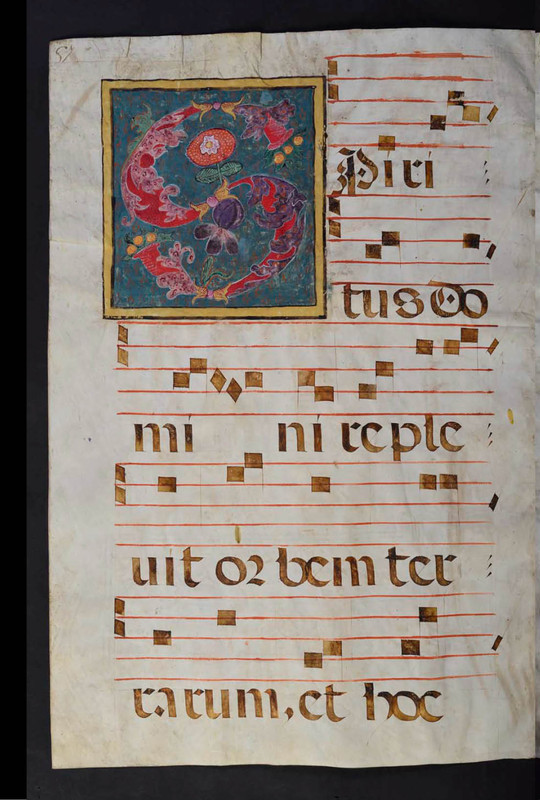 SPiri
tus Do
mi ni reple
uit orbem ter
rarum, et hoc